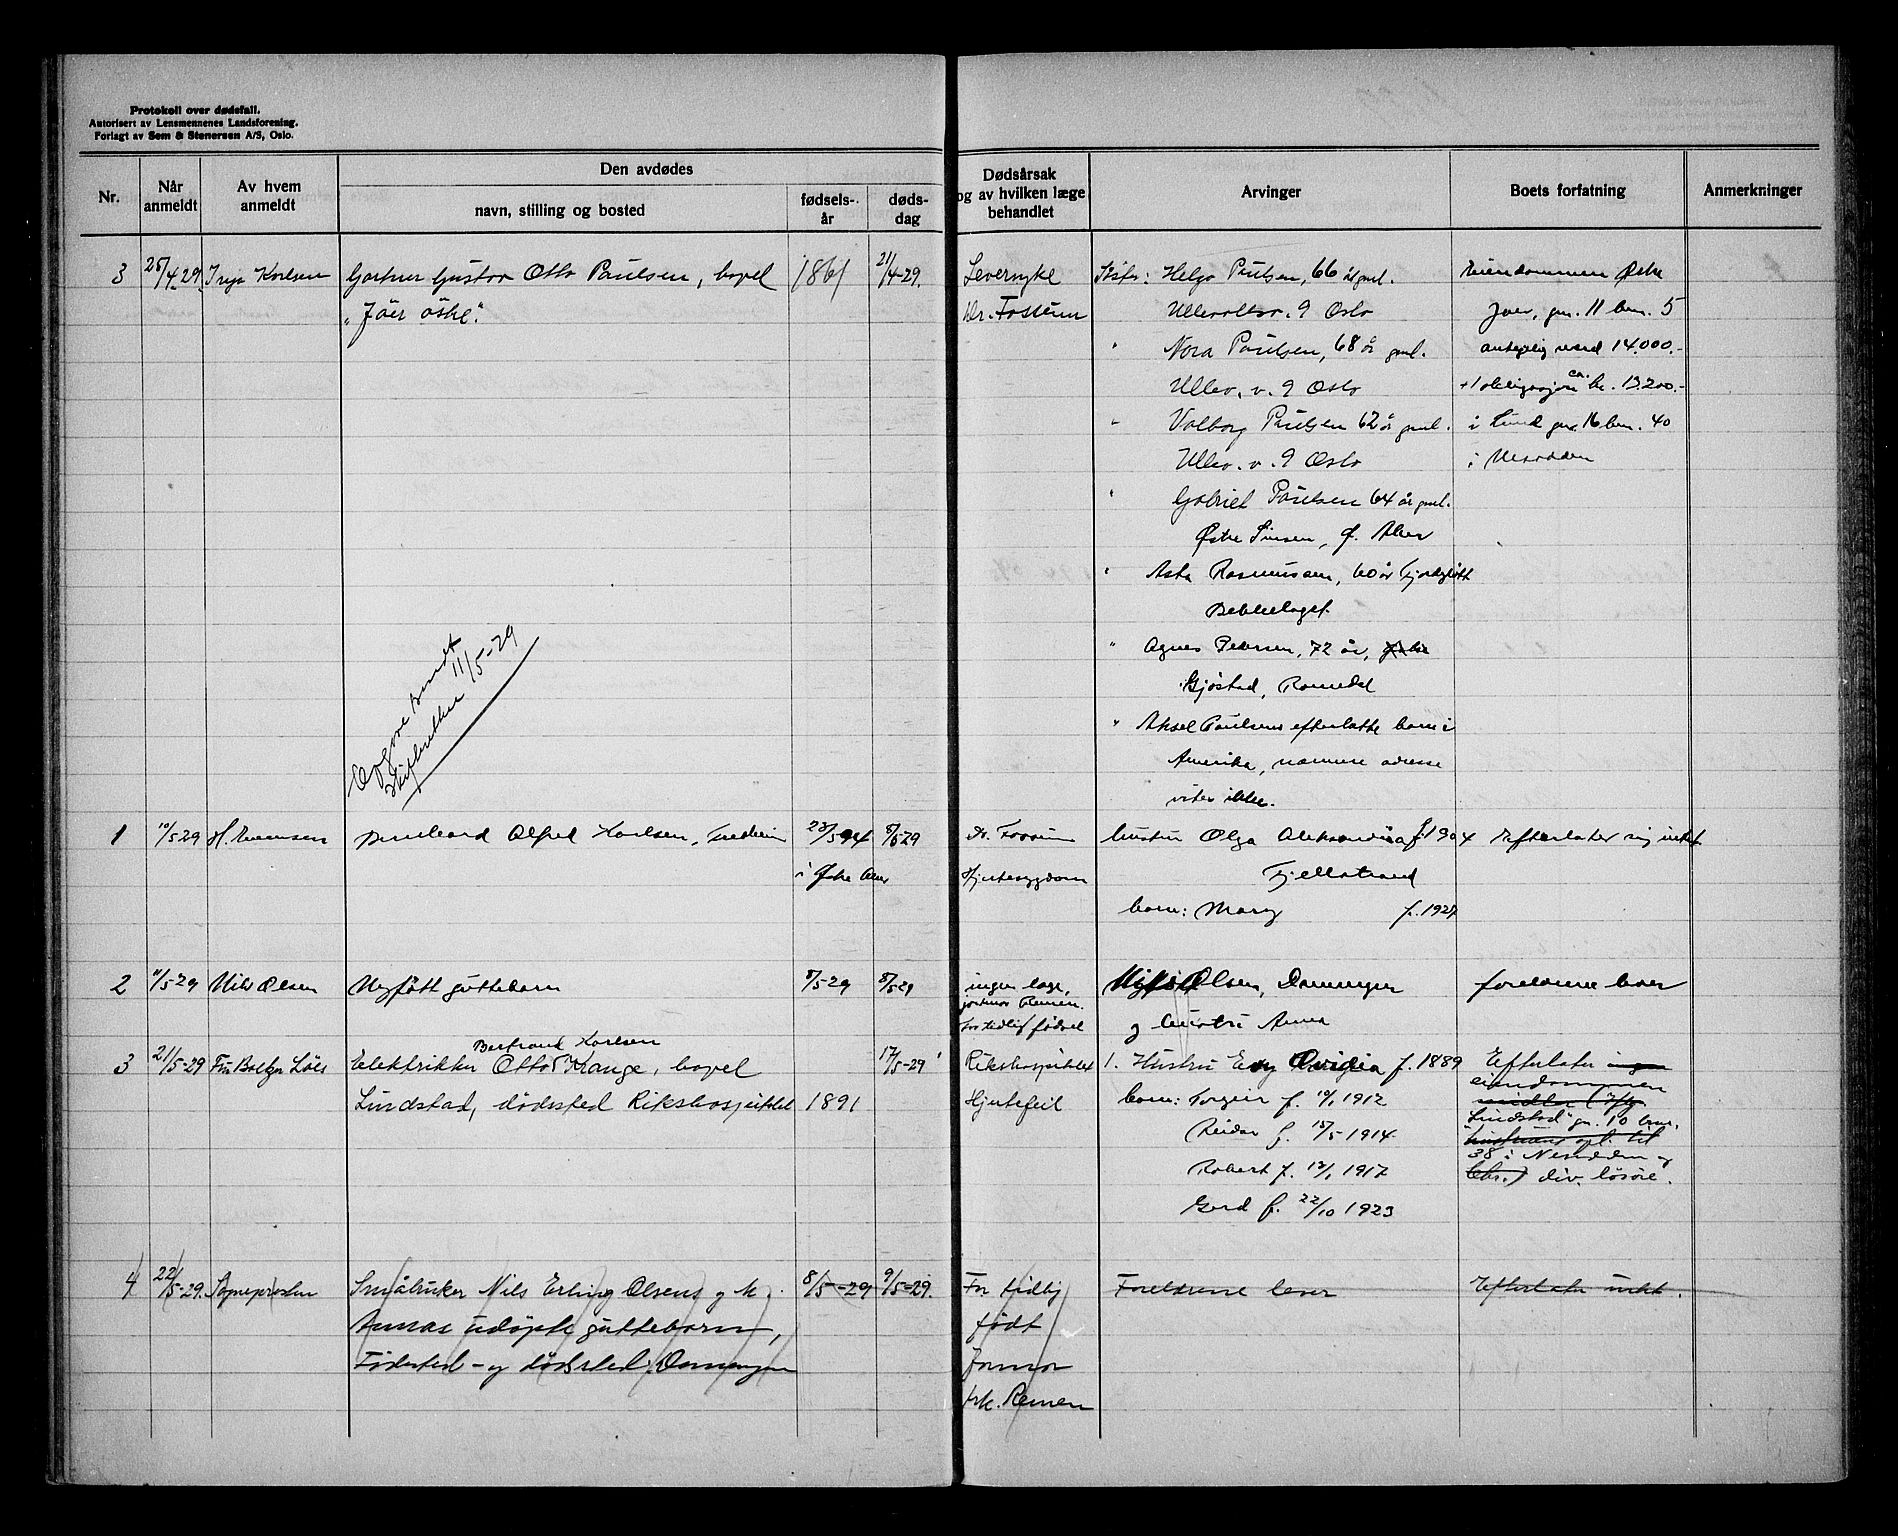 Protokoll over dødsfall.
Autorisert av Lensmennenes Landsforening.
Forlagt av Sem & Stenersen A/S, Oslo.
Nr.
Når anmeldt
Av hvem anmeldt
Den avdødes
navn, stilling og bosted
fødselsår
dødsdag
Dødsårsak og av hvilken læge behandlet
Arvinger
Boets forfatning
Anmerkninger
3 25/4-29. Karlsen Gartner Gustav Otto Paulsen, bopel 1861 21/4-29. Leversyke Helga Paulsen, 66 år gml. Eiendommen Østre
"Jær østre". Dr. Fossum 9 Oslo Jaer, gn. 11 bn. 5
" Nora Paulsen, 68 år gml. antagelig verd 14.000.-
Ullev. v. 9 Oslo + 1 obligasjon ca. kr. 13200.-
" Valborg Paulsen 62 år gml. i Lund gn. 16 bn. 40
Ullev. v. 9 Oslo i Nesodden
" Gabriel Paulsen 64 år gml.
Østre Sinsen, Ø. Aker
" Asta Rasmussen, 60 år
Bekkelaget
" Agnes Petersen, 72 år,
Gjøstad, Romedal
" Aksel Paulsens efterlatte barn i
Amerika, nærmere adresse
vites ikke.
Opgave sendt
Skifteretten 11/5-29
1 10/5-29 H. Bernhard Alfred Karlsen, 23/5 94 8/5-29 Dr. Fossum hustru Olga Aleksandra f. 1904 Efterlater sig intet
i Østre Aker Hjertesygdom Fjellstrand
barn: Mary f. 1927
2 11/5-29 Nils Olsen Nyfött guttebarn 8/5-29 8/5-29 ingen læge, Nils Olsen, Dammyren foreldrene lever
jormor Remen.
for tidlig fødsel og hustru Anna
Bertrand Karlsen
3 21/5-29 Elektrikker Otto Krange, bopel 17/5-29 Rikshospitalet 1. Hustru f. 1889 Efterlater ingen
eiendommen
Lindstad, dødssted Rikshospitalet 1891 Hjertefeil barn: Torgeir f. 10/1 1912 midler
"Lindstad" gn. 10 bnr.
Reidar f. 15/5 1914. hustruens opl. til
38 i Nesodden og
Robert f. 12/1 1917 div. løsöre.
Gerd f. 22/10 1923
4 22/5-29. Sogneprosten Småbruker Nils Erling Olsens og h. 8/5-29 9/5-29. For tidlig Foreldrene lever Efterlater intet.
Annas udöpte guttebarn, født
Fødested - og dödssted Dammyren Jormor
frk. Remen